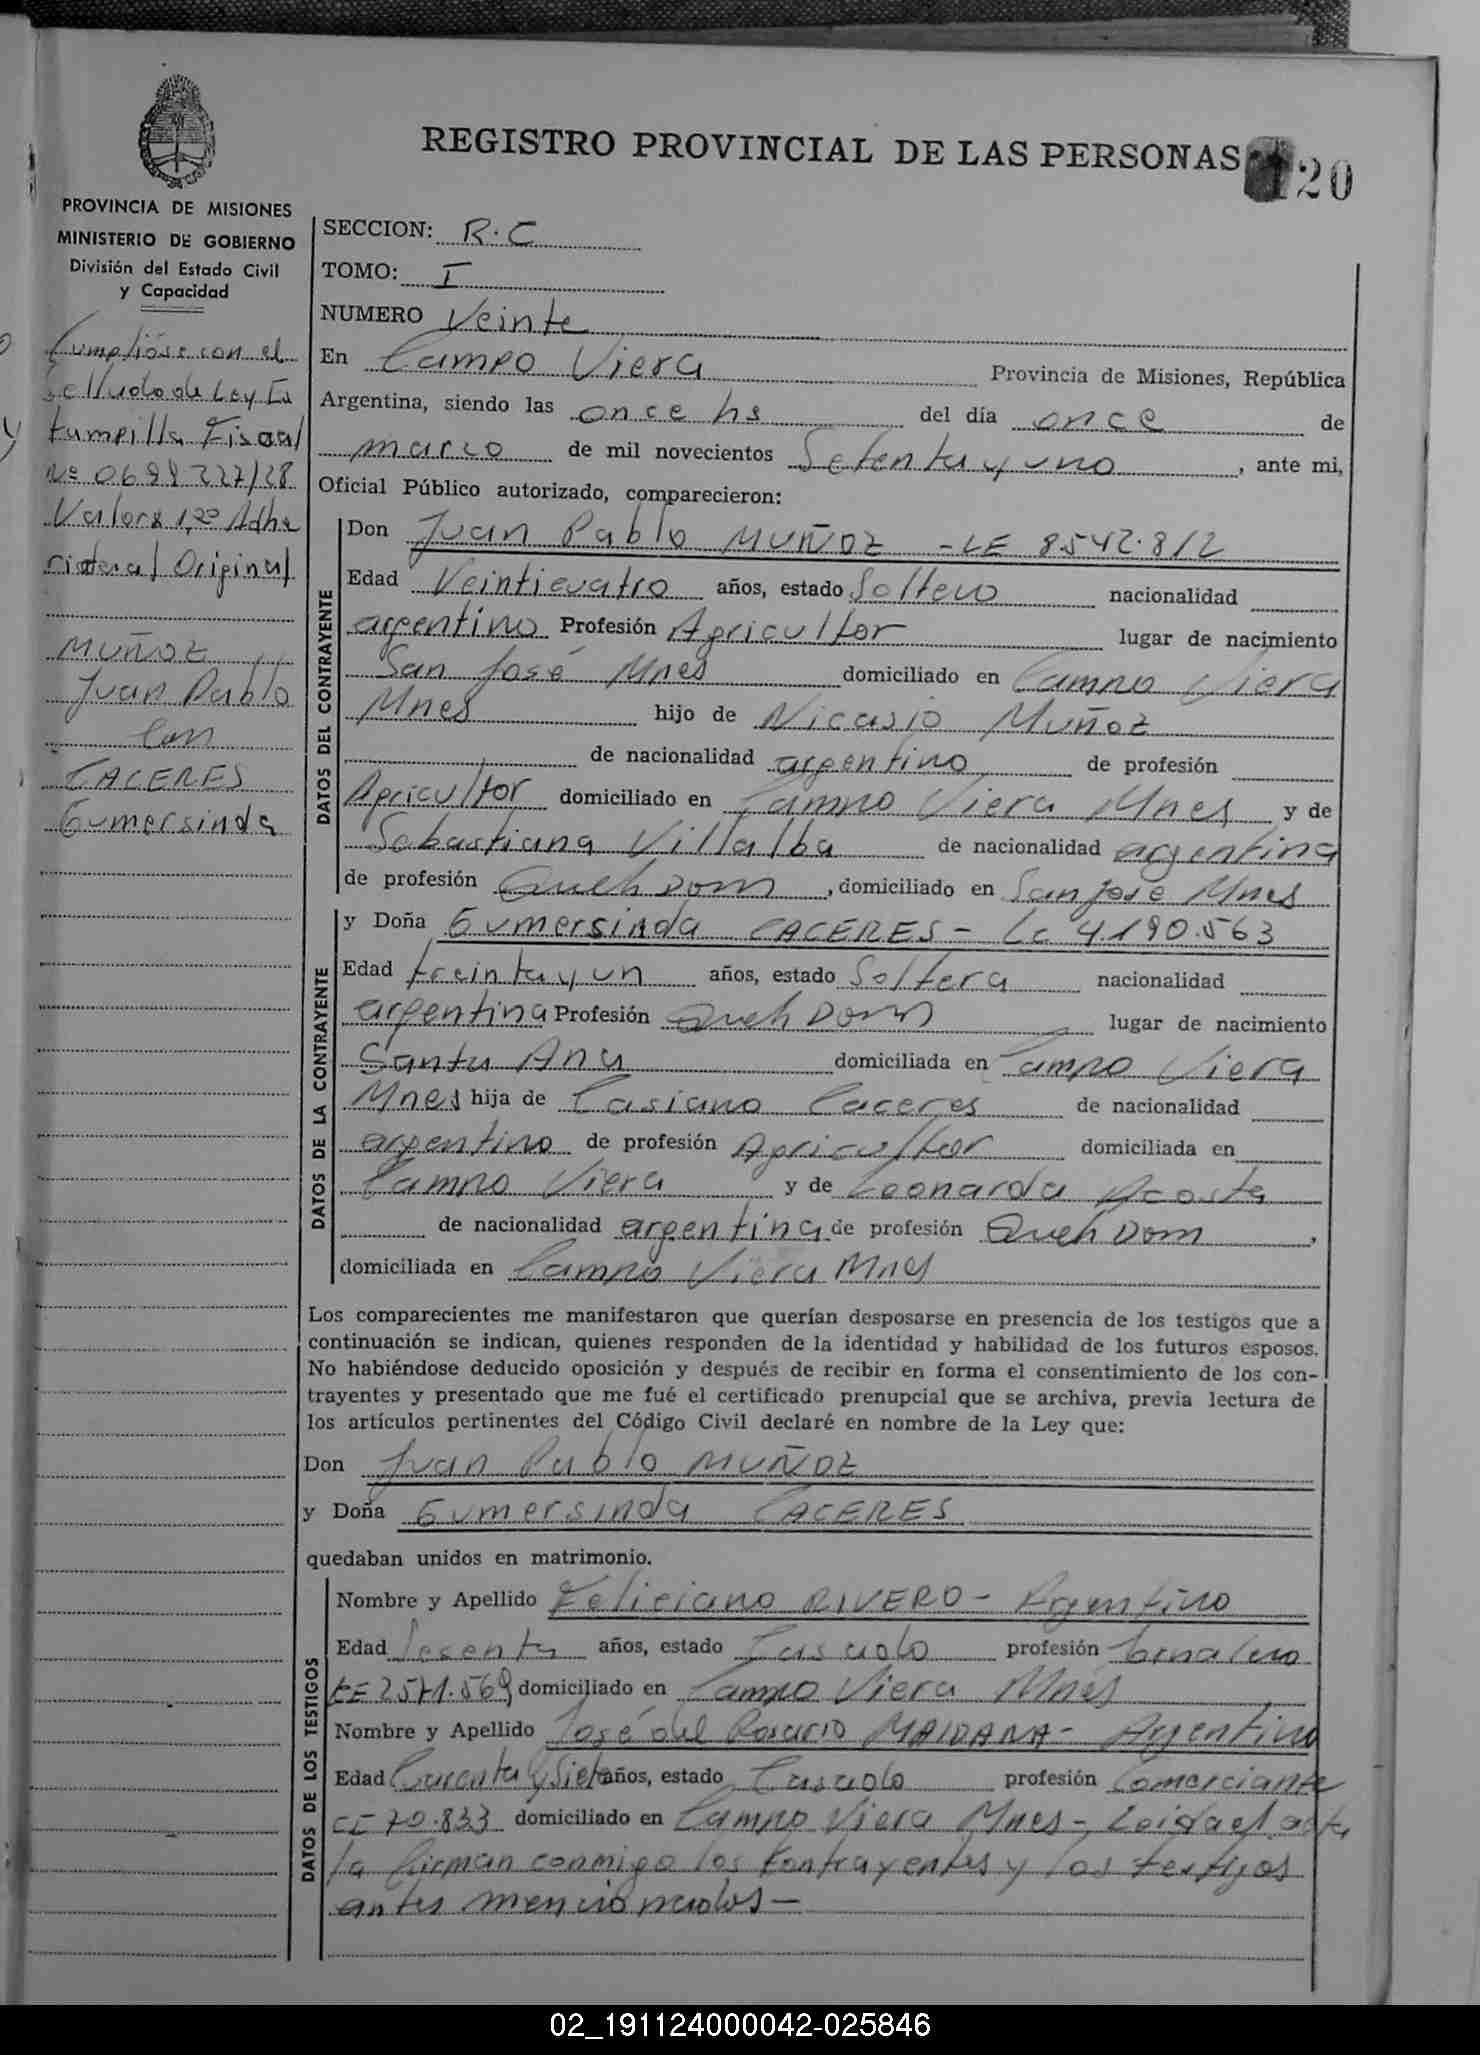 REGISTRO PROVINCIAL DE LAS PERSONAS
20
PROVINCIA DE MISIONES
MINISTERIO DE GOBIERNO
División del Estado Civil
y Capacidad
Cumplióse con el
Sellado de Ley Es
tampilla Fiscal
Nº 0699227/28
Valor $ 1,20 Adhe
rida al Original
MUÑOZ
Juan Pablo
Con
CACERES
Gumersinda
SECCION: R.C
TOMO: I
NUMERO Veinte
En Campo Viera Provincia de Misiones, República
Argentina, siendo las once hs del día once de
marzo de mil novecientos Setenta y uno, ante mi,
Oficial Público autorizado, comparecieron:
DATOS DEL CONTRAYENTE
Don Juan Pablo MUÑOZ - LE 8.542.812
Edad Veinticuatro años, estado Soltero nacionalidad
argentino Profesión Agricultor lugar de nacimiento
San José Mnes domiciliado en Campo Viera
Mnes hijo de Nicasio Muñoz
de nacionalidad argentino de profesión
Agricultor domiciliado en Campo Viera Mnes y de
Sebastiana Villalba de nacionalidad argentina
de profesión Queh Dom, domiciliado en San José Mnes
DATOS DE LA CONTRAYENTE
y Doña Gumersinda CACERES - Lc 4.190.563
Edad treinta y un años, estado Soltera nacionalidad
argentina Profesión Queh Dom lugar de nacimiento
Santa Ana domiciliada en Campo Viera
Mnes hija de Casiano Caceres de nacionalidad
argentino de profesión Agricultor domiciliada en
Campo Viera y de Leonarda Acosta
de nacionalidad argentina de profesión Queh Dom,
domiciliada en Campo Viera Mnes
Los comparecientes me manifestaron que querían desposarse en presencia de los testigos que a
continuación se indican, quienes responden de la identidad y habilidad de los futuros esposos.
No habiéndose deducido oposición y después de recibir en forma el consentimiento de los con-
trayentes y presentado que me fué el certificado prenupcial que se archiva, previa lectura de
los artículos pertinentes del Código Civil declaré en nombre de la Ley que:
Don Juan Pablo MUÑOZ
y Doña Gumersinda CACERES
quedaban unidos en matrimonio.
DATOS DE LOS TESTIGOS
Nombre y Apellido Feliciano RIVERO - Argentino
Edad Sesenta años, estado Casado profesión Jornalero
LE 2571.569 domiciliado en Campo Viera Mnes
Nombre y Apellido José del Rosario MAIDANA - Argentino
Edad Cuarenta y Siete años, estado Casado profesión Comerciante
CI 70.833 domiciliado en Campo Viera Mnes - Leida el acta
la firman conmigo los Contrayentes y los testigos
antes mencionados -
02_191124000042-025846